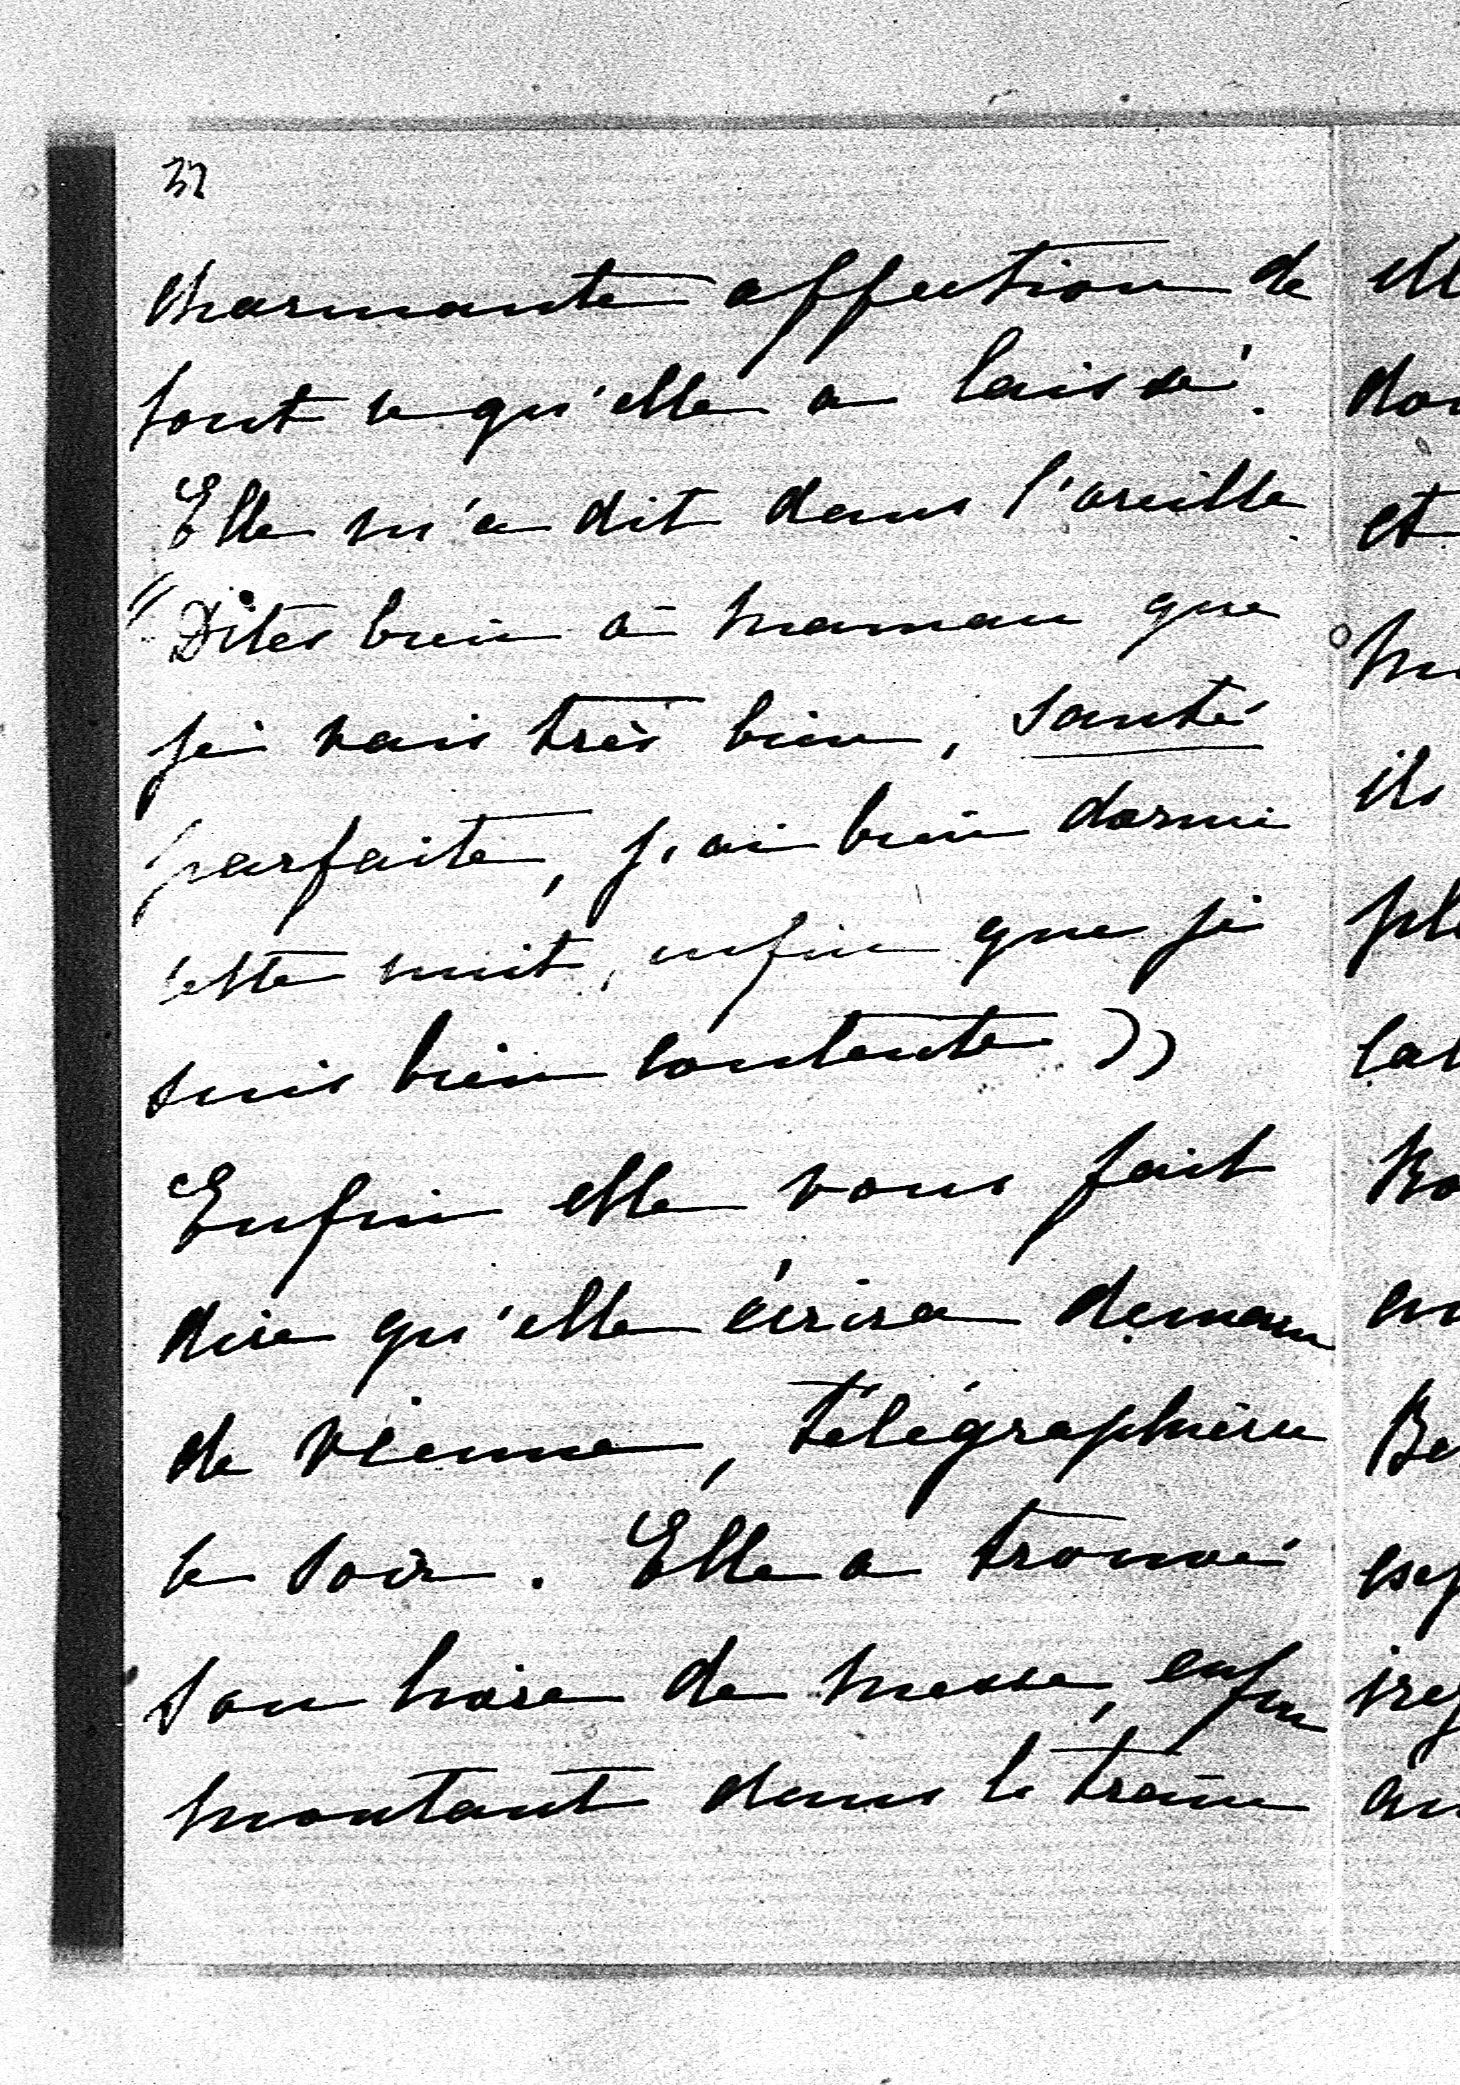 32
charmante affection de
tout ce qu'elle a laissé.
Elle m'a dit dans l'oreille
"Dites bien à maman que
je vais très bien, santé
parfaite, j'ai bien dormi
cette nuit, enfin que je
suis bien contente"
Enfin elle vous fait
dire qu'elle écrira demain
de Vienne, télégraphiera
le soir. Elle a trouvé
son livre de messe, enfin
montant dans le train